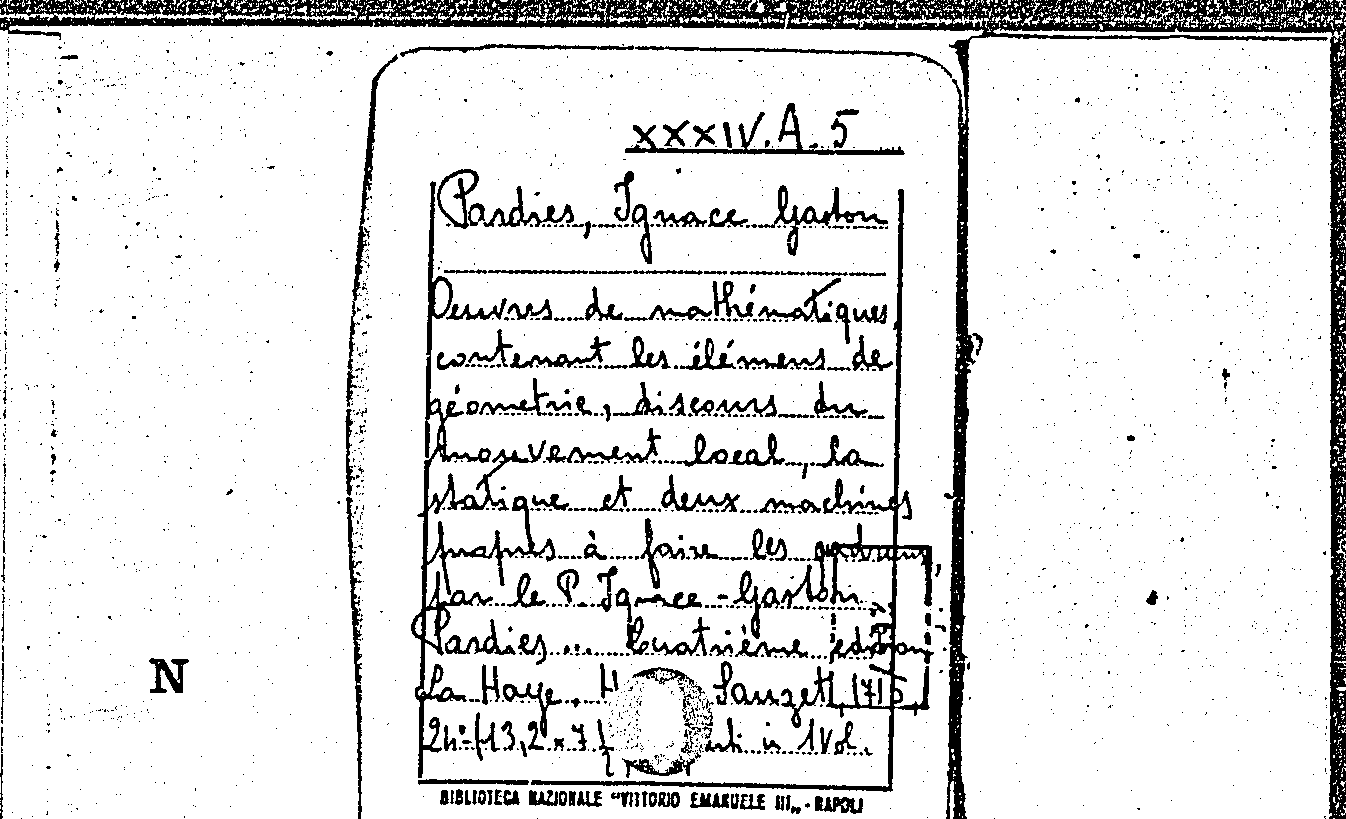 XXXIV.A.5
Pardies, Ignace Gaston
Oeuvres de mathématiques,
contenant les élémens de
géometrie, discours du
mouvement local, la
statique et deux machines
propres à faire les
par le P. Ignace-Gaston
Pardies ... Quatrième édition
La Haye, H Sauzet, 1715,
24°-(13,2×7 in 1 vol.
N
BIBLIOTECA NAZIONALE "VITTORIO EMANUELE III„ - NAPOLI